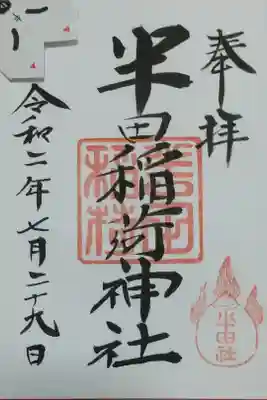 奉拝
半田稲荷神社
令和二年七月二十九日
半田社